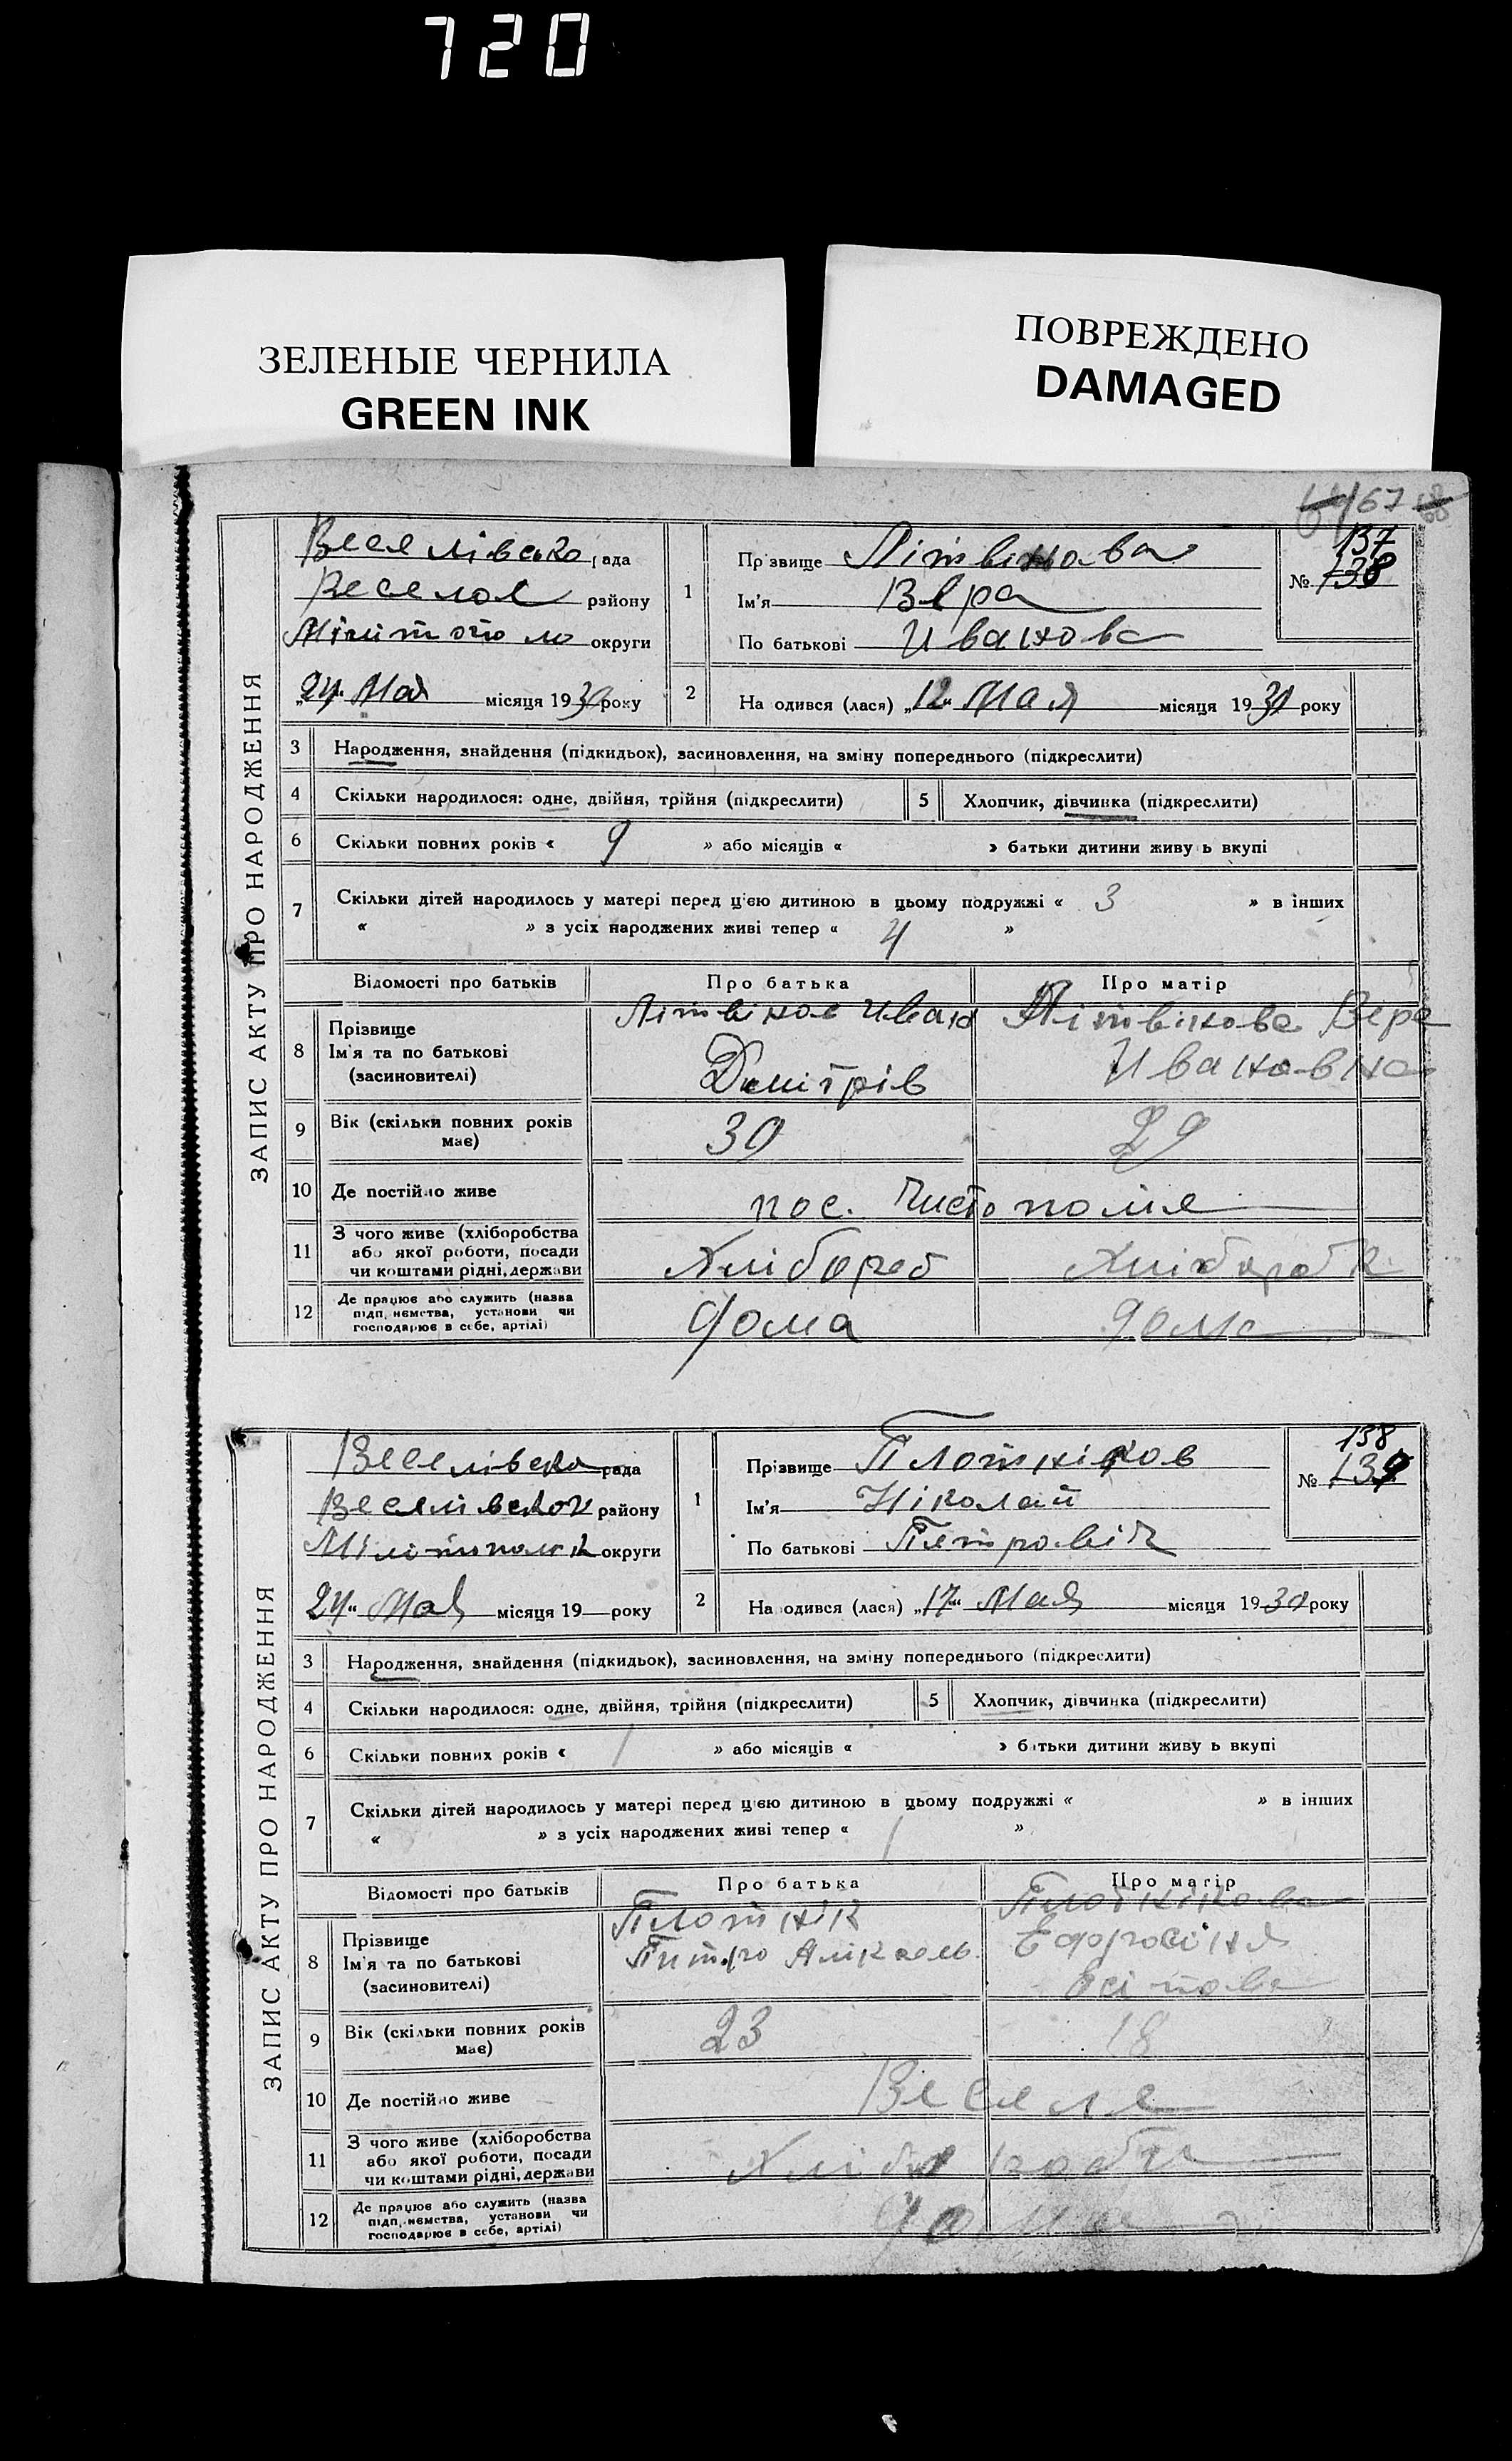 720
ЗЕЛЕНЫЕ ЧЕРНИЛА
GREEN INK
ПОВРЕЖДЕНО
DAMAGED
67
ЗАПИС АКТУ ПРО НАРОДЖЕННЯ
Веселівсько рада
Веселое району
округи
24 Мая місяця 1930 року
1
Прізвище Літвінова
Ім'я Вера
По батькові Иванова
137
№ 138
2
На одився (лася) „12" Мая місяця 1930 року
3 Народження, знайдення (підкидьох), засиновлення, на зміну попереднього (підкреслити)
4 Скільки народилося: одне, двійня, трійня (підкреслити) 5 Хлопчик, дівчинка (підкреслити)
6 Скільки повних років « 9 » або місяців « » батьки дитини живу ь вкупі
7 Скільки дітей народилось у матері перед цією дитиною в цьому подружжі « 3 » в інших
« » з усіх народжених живі тепер « 4 »
Відомості про батьків Про батька Про матір
8 Прізвище
Ім'я та по батькові
(засновителі)
Літвінов Иван
Дмитрів
Літвінова Вера
Ивановна
9 Вік (скільки повних років має) 30 29
10 Де постійно живе пос. Чистополя
11 З чого живе (хліборобства
або якої роботи, посади
чи коштами рідні, держави
Хлібороб
12 Де працює або служить (назва
підп. иємства, установи чи
господарює в себе, артілі)
дома дома
ЗАПИС АКТУ ПРО НАРОДЖЕННЯ
Веселівсько рада
Веселівской району
округи
24" Мая місяця 19 року
1
Прізвище Плотніков
Ім'я Ніколай
По батькові Петровіч
138
№ 139
2
На одився (лася) „17" Мая місяця 1930 року
3 Народження, знайдення (підкидьок), засиновлення, на зміну попереднього (підкреслити)
4 Скільки народилося: одне, двійня, трійня (підкреслити) 5 Хлопчик, дівчинка (підкреслити)
6 Скільки повних років « 1 » або місяців « » батьки дитини живу ь вкупі
7 Скільки дітей народилось у матері перед цією дитиною в цьому подружжі « » в інших
« » з усіх народжених живі тепер « 1 »
Відомості про батьків Про батька Про матір
8 Прізвище
Ім'я та по батькові
(засиновителі)
Плотнік
Плотнікова
Ефросіня
Осіпова
9 Вік (скільки повних років має) 23 18
10 Де постійно живе Веселе
11 З чого живе (хліборобства
або якої роботи, посади
чи коштами рідні, держави
12 Де працює або служить (назва
підп. иємства, установи чи
господарює в себе, артілі)
дома